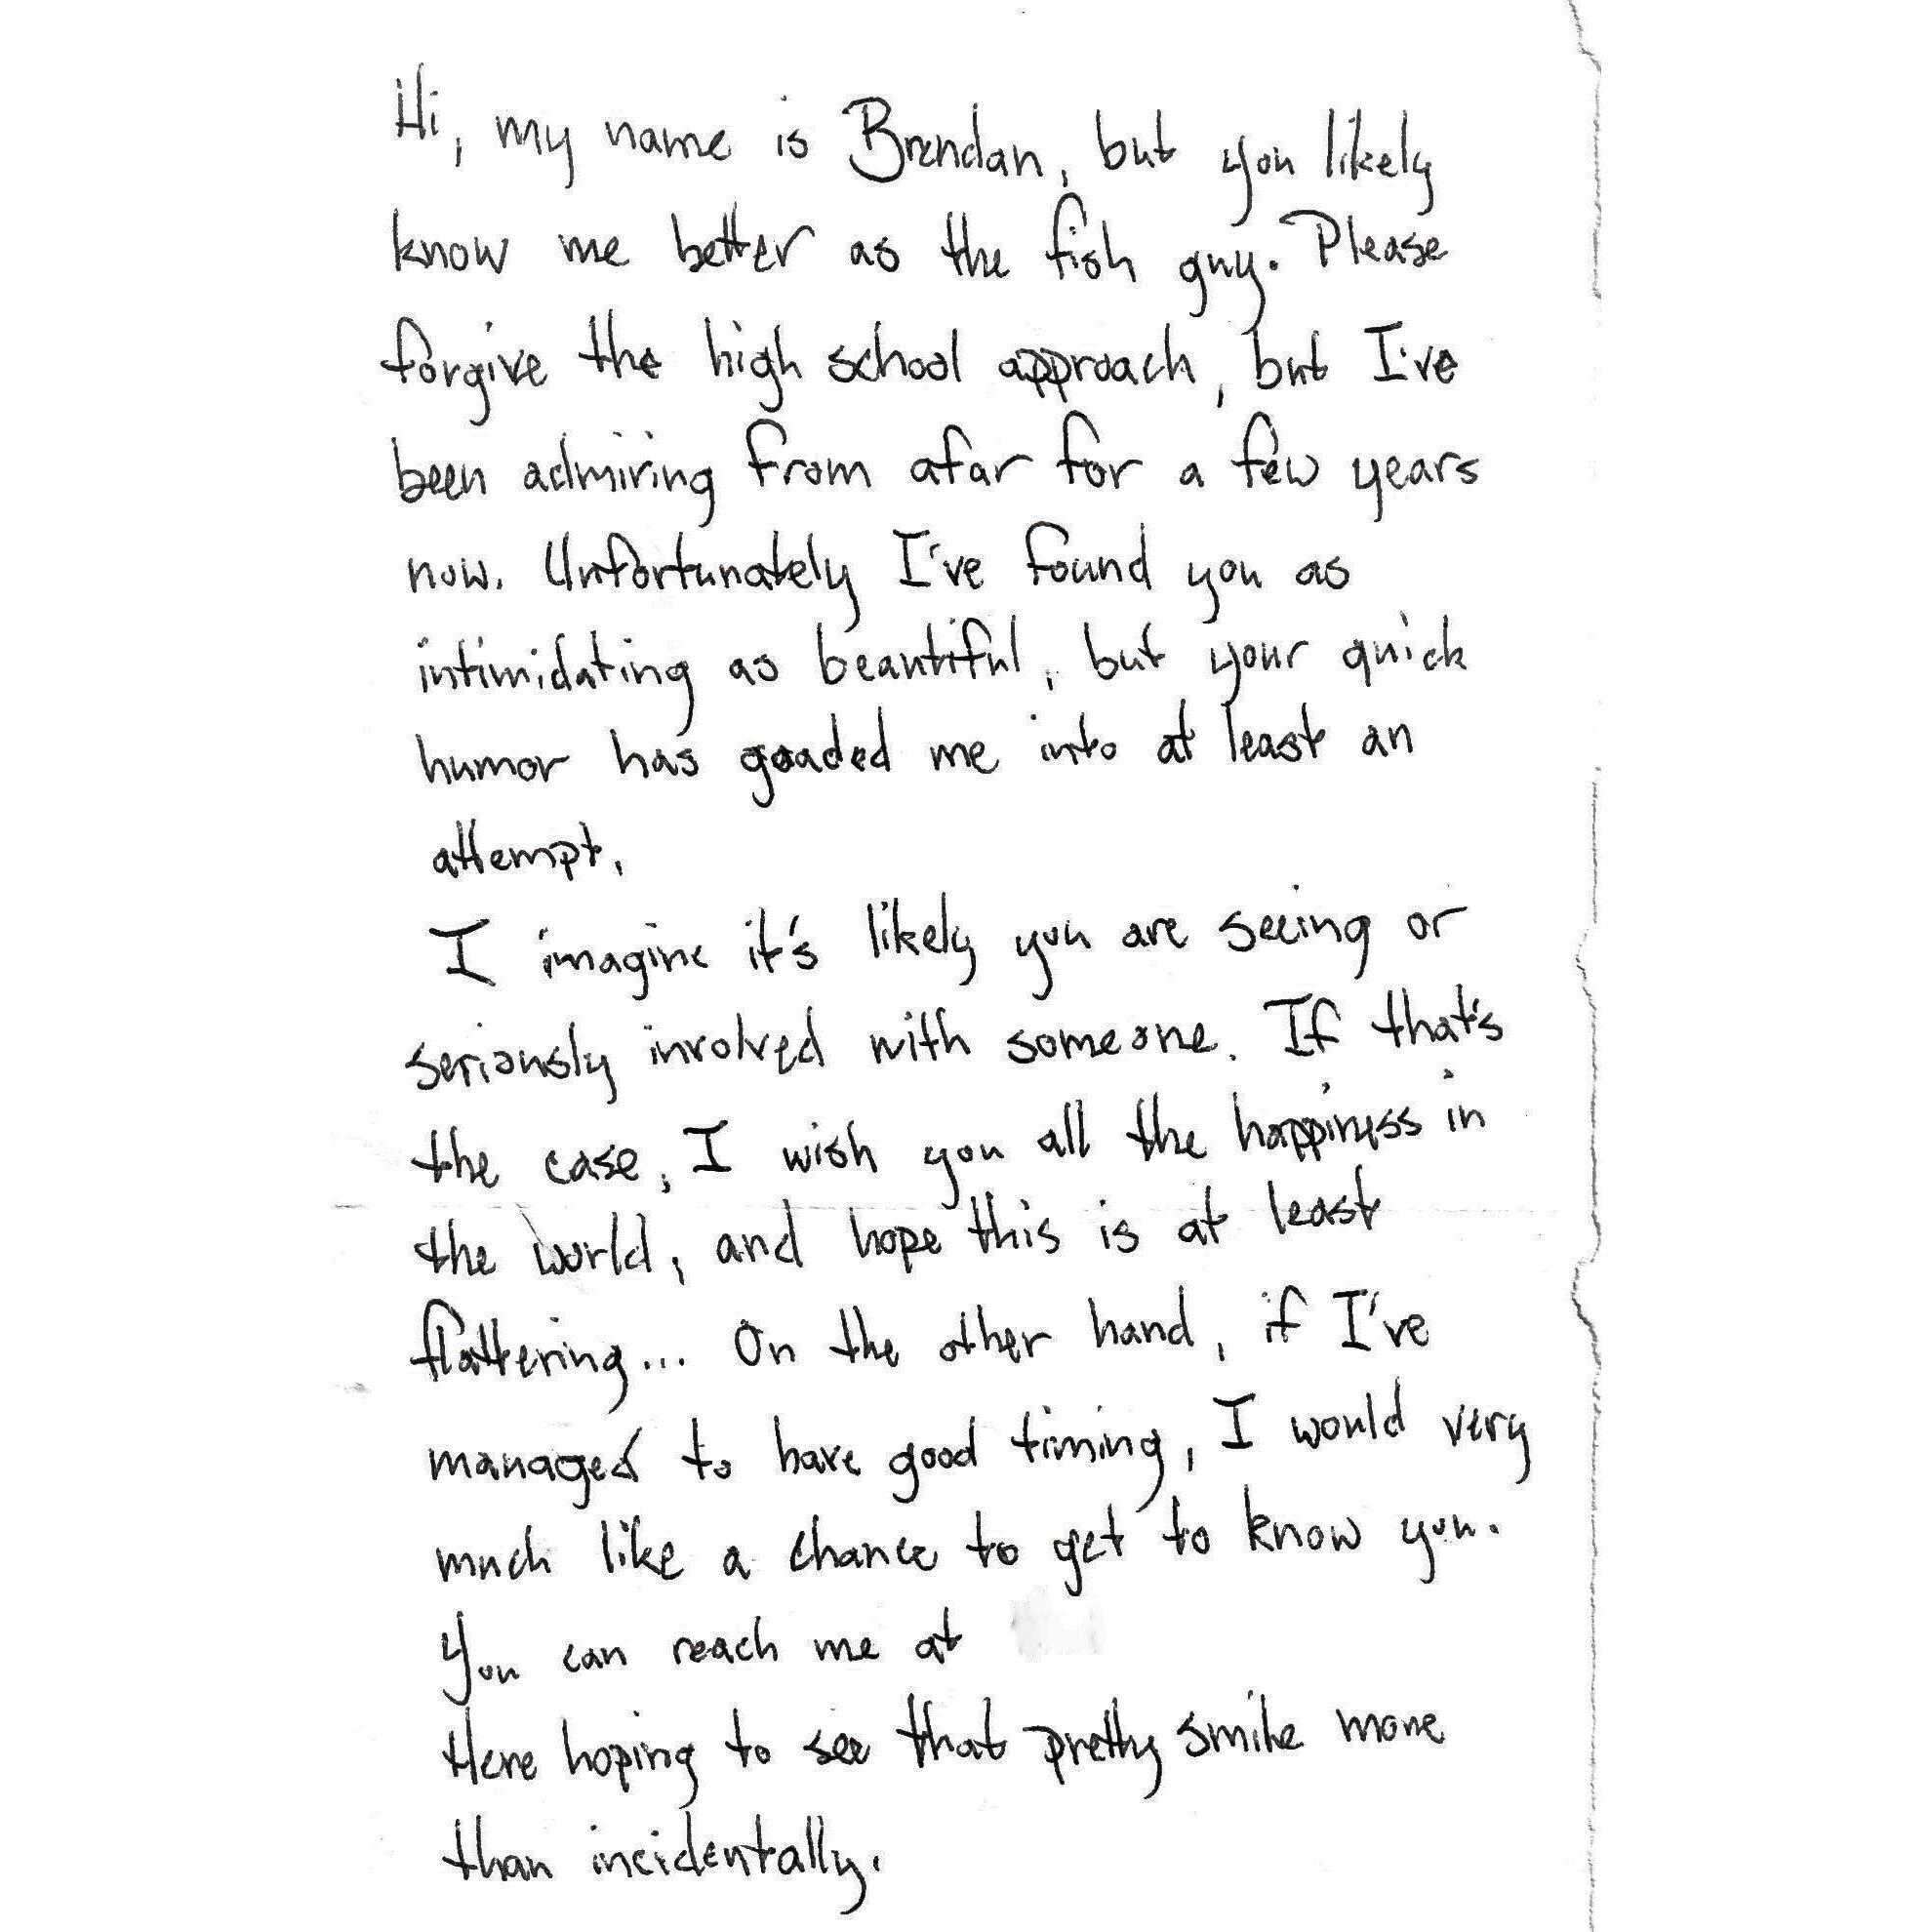 Hi, my name is Brendan, but you likely
know me better as the fish guy. Please
forgive the high school approach, but I've
been admiring from afar for a few years
now. Unfortunately I've found you as
intimidating as beautiful, but your quick
humor has goaded me into at least an
attempt.
I imagine it's likely you are seeing or
seriously involved with someone. If that's
the case, I wish you all the happiness in
the world, and hope this is at least
flattering... On the other hand, if I've
managed to have good timing, I would very
much like a chance to get to know you.
You can reach me at
Here hoping to see that pretty smile more
than incidentally.